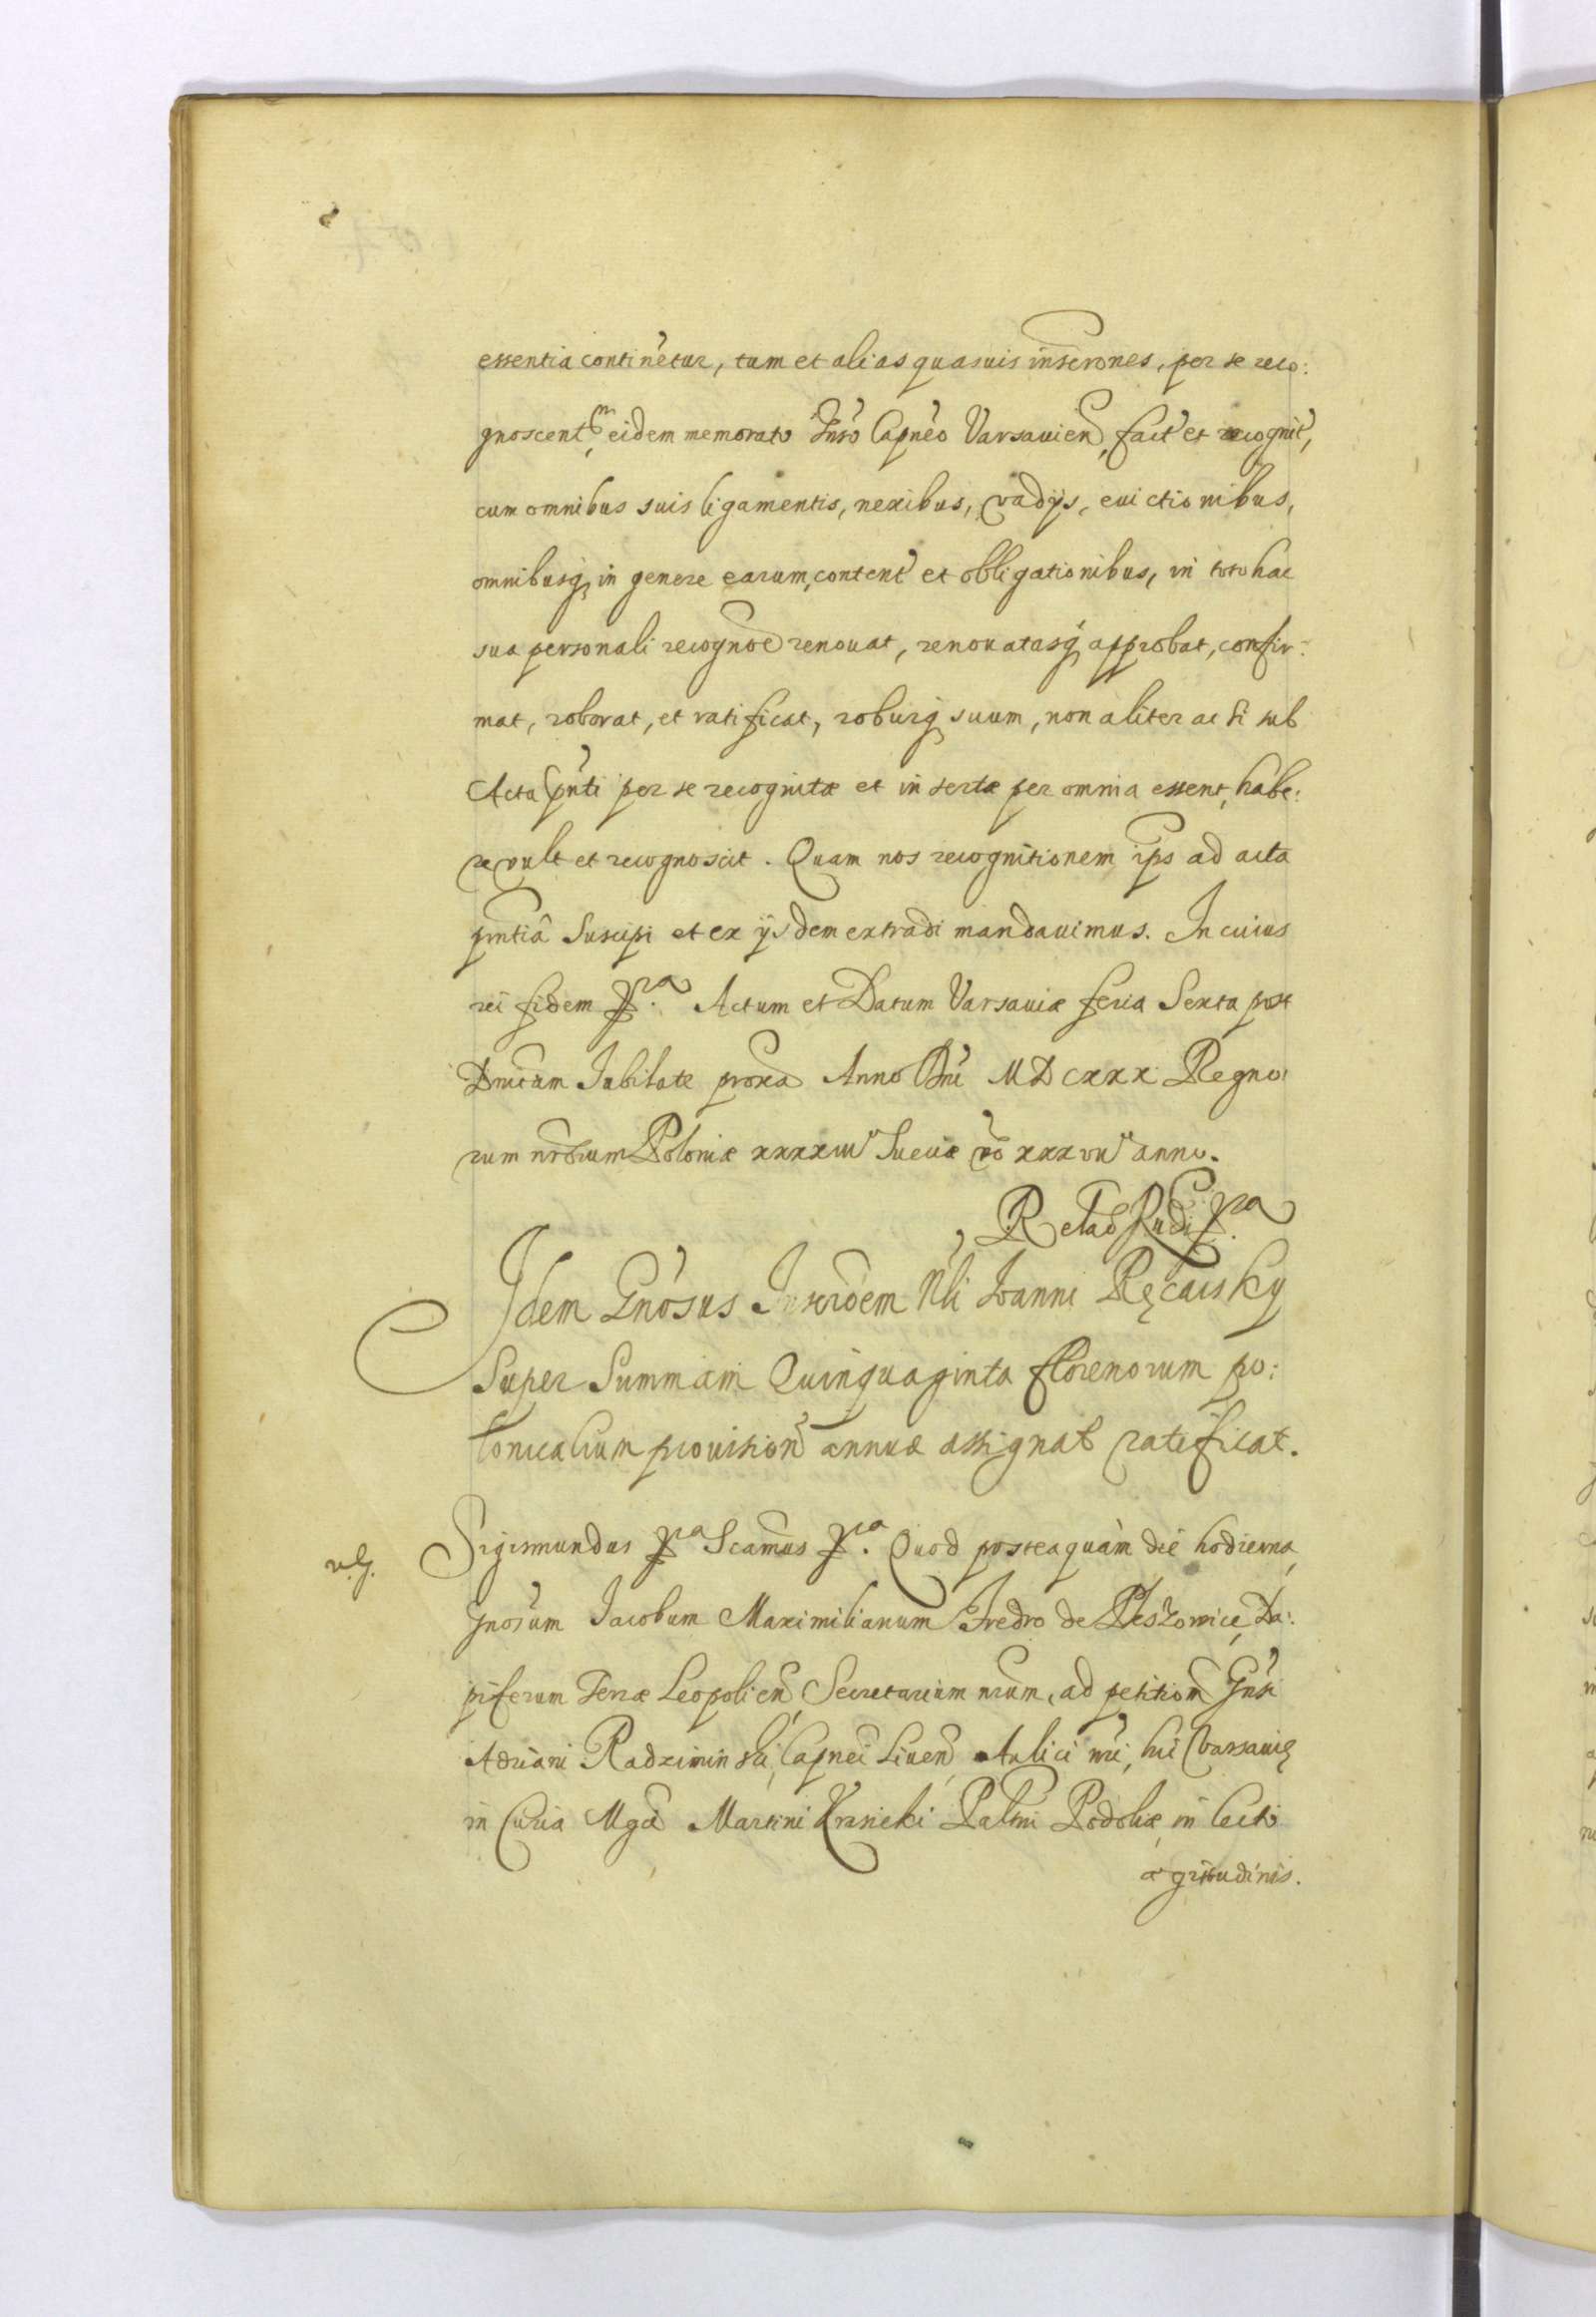 essentia continetur, tum et alias quasuis inscrones, per se reco:
gnoscentem, eidem memorato Gnso Capneo Varsavien, fact et recognit,
cum omnibus suis ligamentis, nexibus, vadijs, evictionibus,
omnibusq in genere earum, content et obligationibus, in toto hac
sua personali recognoe renovat, renovatasq approbat, confir:
mat, roborat, et ratificat, roburq suum, non aliter ac si sub
Acta pnti per se recognitæ et insertæ per omnia essent, habe:
re vult et recognoscit. Quam nos recognitionem ips ad acta
pntia suscipi et ex ijsdem extradi mandavimus. In cuius
rei fidem pra. Actum et Datum Varsaviæ feria Sexta post
Dnicam Jubilate proxa Anno Dni MDCXXX Regno
rum nrorum Poloniæ xxxxiii Sueciæ vo xxxvii anno.
Relao Rndi pra
Idem Gnosus Inscroem Nli Joanni Ręcaisky
Super Summam Quinquaginta florenorum po:
lonicalium provision annuæ assignat ratificat.
v.g. Sigismundus pra Scamus pra. Quod posteaquàm die hodierna,
Gnosum Jacobum Maximilianum Fredro de Pleszowice, Da:
piferum Terræ Leopolien, Secretarium nrum, ad petition Gnsi
Adriani Radziminski, Capnei Liven, Aulici nri, hic Varsaviæ
in Curia Mgci Martini Krasicki Paltni Podoliæ, in lecto
ægritudinis.